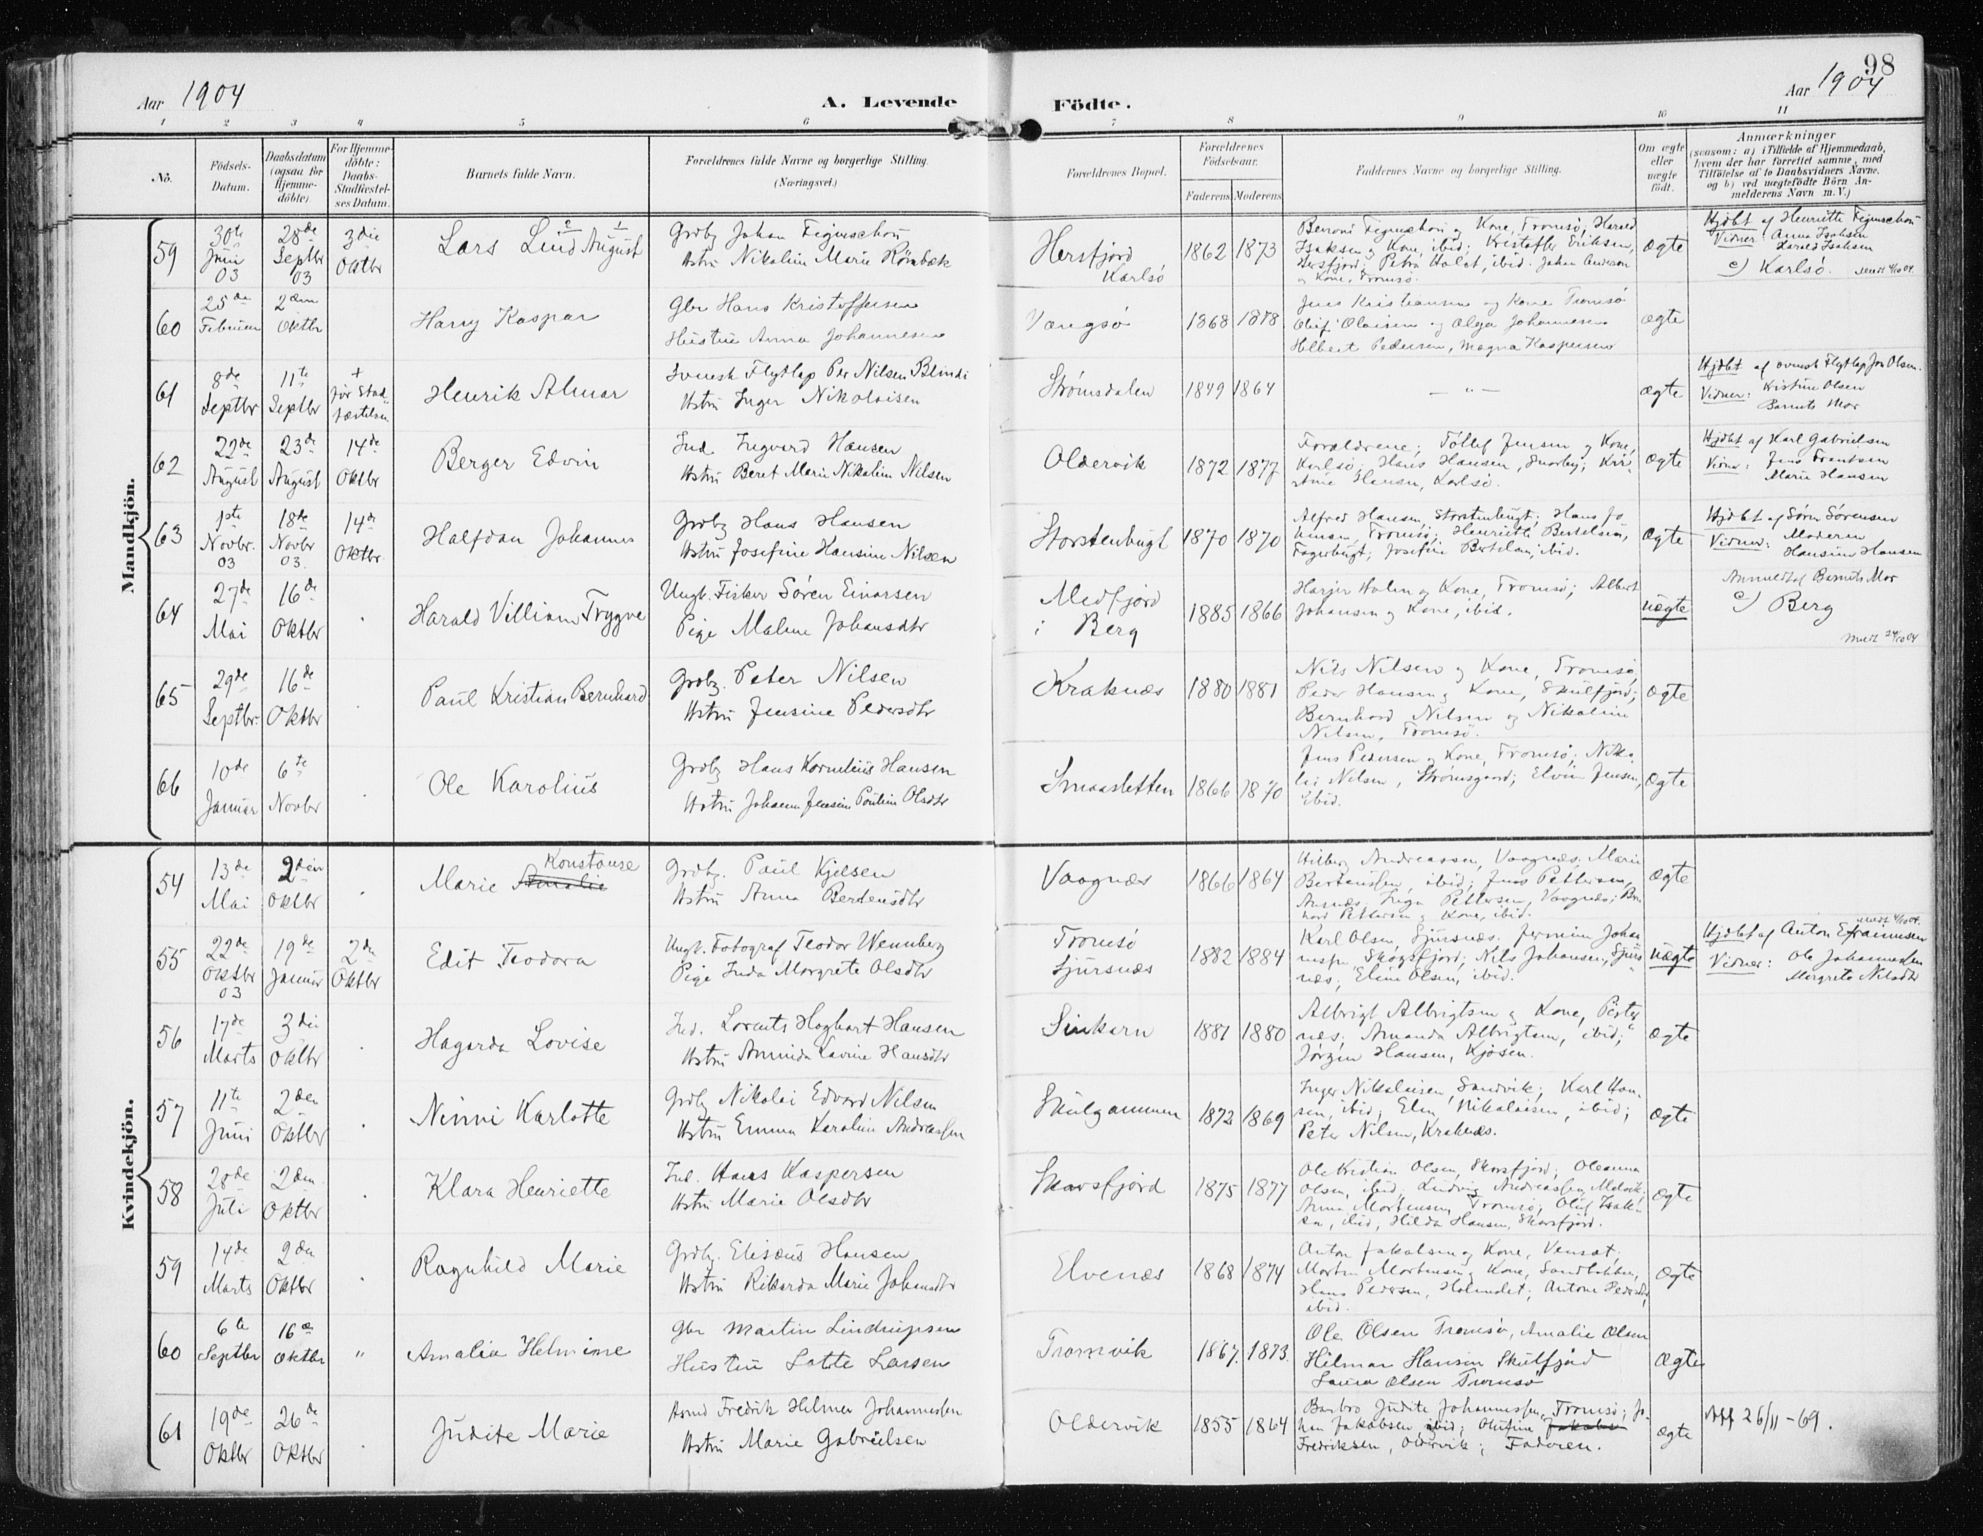 98
Aar 1904
A. Levende Födte.
Aar 1904
1 2 3 4 5 6 7 8 9 10 11
No.
Födsels-Datum.
Daabsdatum (ogsaa for Hjemmedöbte)
For Hjemmedöbte: Daabs-Stadfæstelses Datum.
Barnets fulde Navn.
Forældrenes fulde Navne og borgerlige Stilling. (Næringsvei.)
Forældrenes Bopæl.
Forældrenes Födselsaar.
Faderens Moderens
Faddernes Navne og borgerlige Stilling.
Om ægte eller uægte födt.
Anmærkninger
(saasom: a) i Tilfælde af Hjemmedaab,
hvem der har forrettet samme, med
Tilföielse af to Daabsvidners Navne,
og b) ved uægtefödte Börn An-
melderens Navn m. V.)
Mandkjön.
59
30te Juni 03
28de Septbr 03
3die Oktbr
Lars Lind August
Grdbr Johan Figenschou
Hstru Nikoline Marie Rönbæk
Hersfjord
Karlsö
1862 1873
Figenschou og Kone, Tromsö; Harald
Isaksen og Kone, ibid; Kristoffer Eriksen,
Hersfjord; Petra Holst, ibid. Johan Anderson
og Kone, Tromsö.
ægte
Hjdbt af Henriette Figenschou
Vidner: Anna Isaksen
Harald Isaksen
c) Karlsö.
60
25de Februar
2den Oktbr
Harry Kaspar
Gbr Hans Kristoffersen
Hustru Anna Johannesen
Vangsö
1868 1878
Jens Kristiansen og Kone Tromsö
Oluf Olaisen og Olga Johannesen
Helbert Pedersen, Magna Kaspersen
ægte
61
8de Septbr
11te Septbr
+ før Stadfæstelsen
Henrik Almar
Svensk Flytlap Per Nilsen Blindi
Hstru Inger Nikolaisen
Strømsdalen
1849 1864
— " —
ægte
Hjdbt af svensk Flytlap Jon Olsen.
Vidner: Kristine Olsen
Barnets Mor
62
22de August
23de August
14de Oktbr
Berger Edvin
Ind. Ingvard Hansen
Hstru Beret Marie Nikoline Nilsen
Oldervik
1872 1877
Forældrene; Tollef Jensen og Kone,
Karlsö; Hans Hansen, Snarby;
Hansen, Karlsö.
ægte
Hjdbt af Karl Gabrielsen
Vidner: Jens Frantsen
Marie Hansen
63
1ste Novbr. 03
18de Novbr 03.
14de Oktbr
Halfdan Johannes
Grdbr Hans Hansen
Hstru Josefine Hansine Nilsen
Storstenbugt
1870 1870
Alfred Hansen, Storstenbugt; Hans Jo
hansen, Tromsö; Henriette Bertelsen,
Fagerbugt; Josefine Bertelsen, ibid.
ægte
Hjdbt af Sørn Sørensen
Vidner: Moderen
Hansine Hansen
64
27de Mai
16de Oktbr
Harald Villiam Trygve
Ungk. Fisker Søren Einarsen
Pige Maline Johansdtr
Medfjord
i Berg
1885 1866
Holm og Kone, Tromsö; Albert
Johansen og Kone, ibid.
uægte
Anmeldt af Barnets Mor
c) Berg
Meldt 24/10 04
65
29de Septbr.
16de Oktbr
Paul Kristian Bernhard
Grdbr. Peter Nilsen
Hstru Jensine Pedersdtr
Kraknæs
1880 1881
Nils Nilsen og Kone, Tromsö;
Peder Hansen og Kone, Skulfjord;
Bernhard Nilsen og Nikoline
Nilsen, Tromsö.
ægte
66
10de Januar
6te Novbr
Ole Karolius
Grdbr Hans Kornelius Hansen
Hstru Johanne Jensine Pouline Olsdtr
Smaasletten
1866 1870
Jens Pedersen og Kone, Tromsö; Niko-
lai Nilsen, Strømsgaard; Elvine Jensen,
Ibid.
ægte
Kvindekjön.
54
13de Mai
2den Oktbr
Marie Amalie Konstanse
Grdbr. Paul Kjelsen
Hstru Anna Berdensdtr
Vaagnæs
1866 1864
Hilberg Andreassen, Vaagnæs; Marie
ibid; Jens Pettersen,
Inga Pettersen, Vaagnæs; Bern
hard Pettersen og Kone, ibid.
ægte
55
22de Oktbr 03
19de Januar
2den Oktbr
Edit Teodora
Ungk. Fotograf Teodor Wennberg
Pige Inda Margrete Olsdtr
Tromsö
Sjursnæs
1882 1884
Karl Olsen, Sjursnæs; Johan
nesen Skogsfjord; Nils Johansen, Sjurs
næs; Eline Olsen, ibid.
uægte
Hjdbt af Anton Efraimsen
Vidner: Ole Johannesen
Margrete Nilsdtr
56
17de Marts
3die Oktbr
Hagarda Lovise
Ind. Lorents Hagbart Hansen
Hstru Aminda Lavine Hansdtr
Sinkarn
1881 1880
Albrigt Albrigtsen og Kone,
næs; Amanda Albrigtsen, ibid;
Jørgen Hansen, Kjosen.
ægte
57
11te Juni
2den Oktbr
Ninni Karlotte
Grdbr Nikolai Edvard Nilsen
Hstru Emma Karoline Andreassen
Skulgammen
1872 1869
Inger Nikolaisen, Sandvik; Karl Han-
sen, ibid; Nikolaisen, ibid;
Peter Nilsen, Kraknæs.
ægte
58
28de Juli
2den Oktbr
Klara Henriette
Ind. Hans Kaspersen
Hstru Marie Olsdtr
Skarsfjord
1875 1877
Ole Kristian Olsen, Skarsfjord; Oleanna
Olsen, ibid; Ludvig Andreassen, Melvik;
Anna Mortensen, Tromsö; Oluf Isak-
sen, ibid; Hilda Hansen, Skarsfjord.
ægte
59
14de Marts
2den Oktbr
Ragnhild Marie
Grdbr. Elisæus Hansen
Hstru Rikarda Marie Johansdtr
Elvenæs
1868 1874
Anton Jakobsen og Kone,
Martin Mortensen og Kone,
Hans Pedersen, Antone Pedersen,
ibid.
ægte
60
6te Septbr
16de Oktbr
"
Amalie Helmine
Gbr Martin Lindrupsen
Hustru Lotte Larsen
Tromvik
1867. 1873.
Ole Olsen Tromsö, Amalie Olsen
Hilmar Hansen Skulfjord
Laura Olsen Tromsö
ægte
61
19de Oktbr
26de Oktbr
Judite Marie
Fredrik Helmer Johannessen
Hstru Marie Gabrielsen
Oldervik
1855 1864
Barbro Judite Johannessen, Tromsö; Jo-
han Jakobsen, ibid; Olufine Jakobs
Fredriksen, Oldervik; Faderen.
ægte
26/11 - 69.